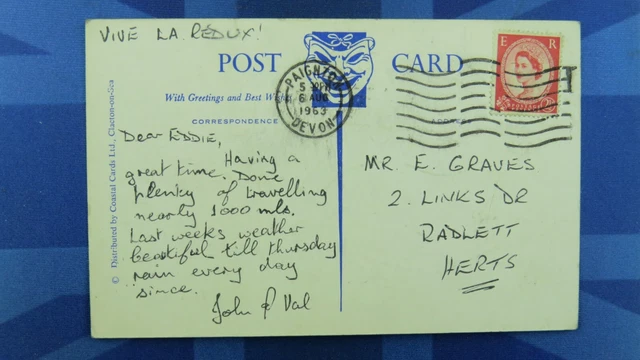 VIVE LA REDUX!
POST CARD
With Greetings and Best Wishes
CORRESPONDENCE
ADDRESS
PAIGNTON
5 PM
6 AUG
1963
DEVON
E R
© Distributed by Coastal Cards Ltd., Clacton-on-Sea
Dear EDDIE,
Having a
great time. Done
plenty of travelling
nearly 1000 mls.
Last weeks weather
beautiful till thursday
rain every day
since.
John & Val
MR. E. GRAVES
2. LINKS DR
RADLETT
HERTS